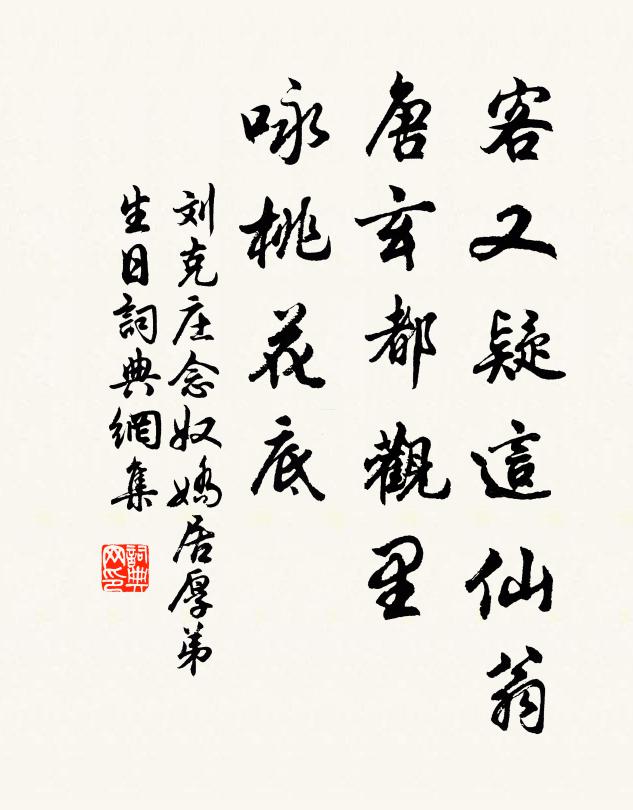 客又疑這仙翁
唐玄都觀里
咏桃花底
刘克庄念奴嬌居厚弟
生日詞典網集
詞典網印